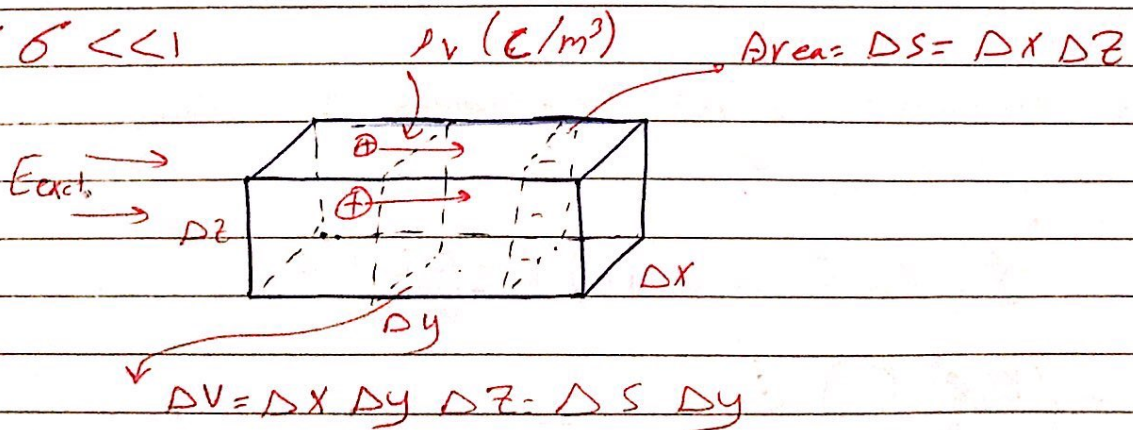 σ <<1 ρv (C/m³) Area= ΔS= ΔX ΔZ
Eext.
ΔZ
ΔX
Δy
ΔV= ΔX Δy ΔZ= ΔS Δy